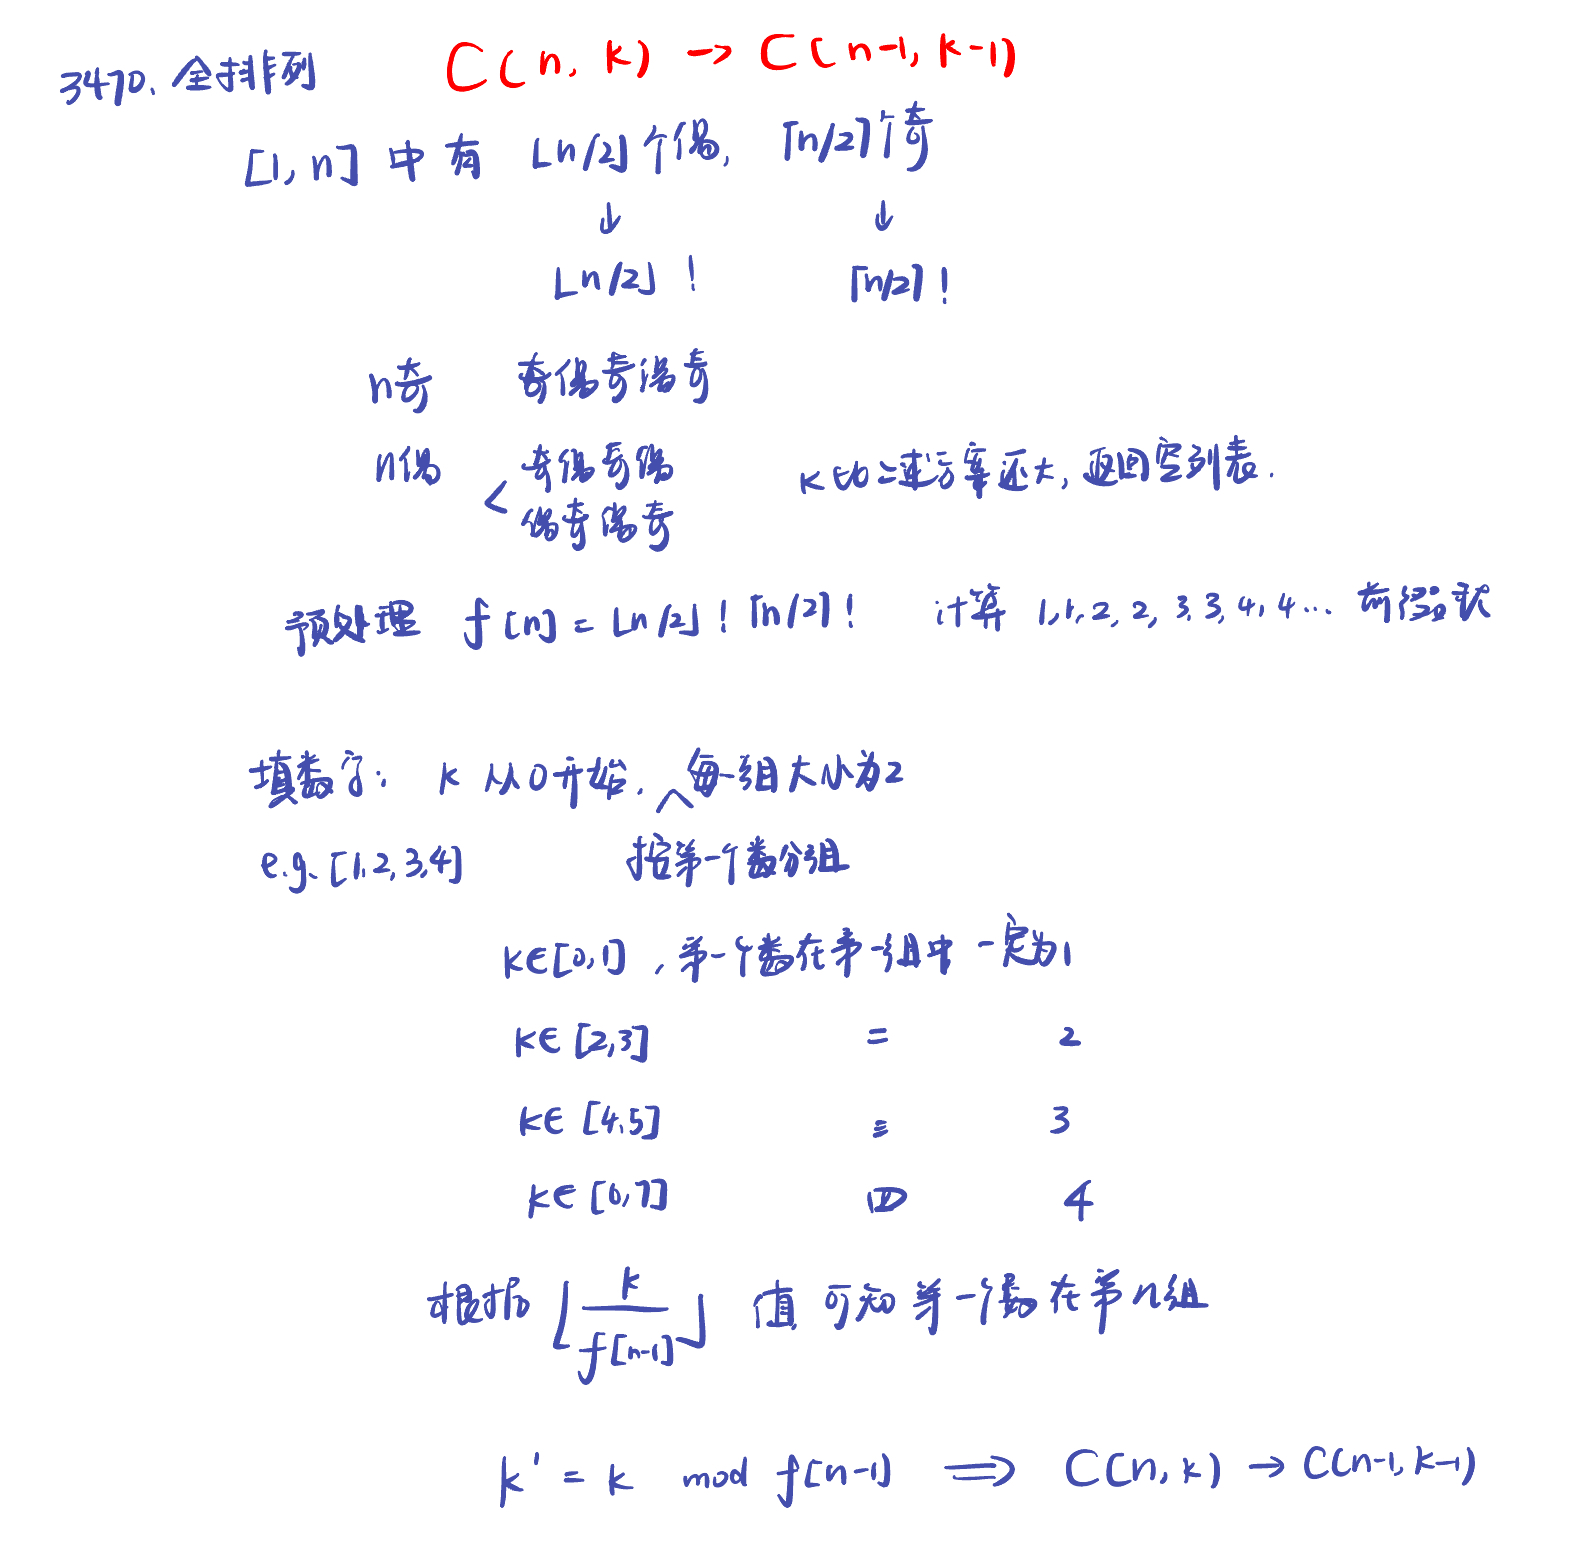 3470. 全排列 C(n, k) → C(n-1, k-1)
[1, n] 中有 ⌊n/2⌋个偶, ⌈n/2⌉个奇
↓ ↓
⌊n/2⌋! ⌈n/2⌉!
n奇 奇偶奇偶奇
n偶 < 奇偶奇偶
偶奇偶奇
k 比 方案还大, 返回空列表.
预处理 f[n] = ⌊n/2⌋! ⌈n/2⌉! 计算 1, 1, 2, 2, 3, 3, 4, 4... 前缀积
填数字: k 从0开始, 每一组大小为2
e.g. [1, 2, 3, 4] 按第一个数分组
k∈[0,1], 第一个数在第一组中 一定为1
k∈[2,3] 二 2
k∈[4,5] 三 3
k∈[6,7] 四 4
根据 ⌊k/f[n-1]⌋ 值, 可知 第一个数在第几组
k' = k mod f[n-1] ⟹ C(n, k) → C(n-1, k-1)